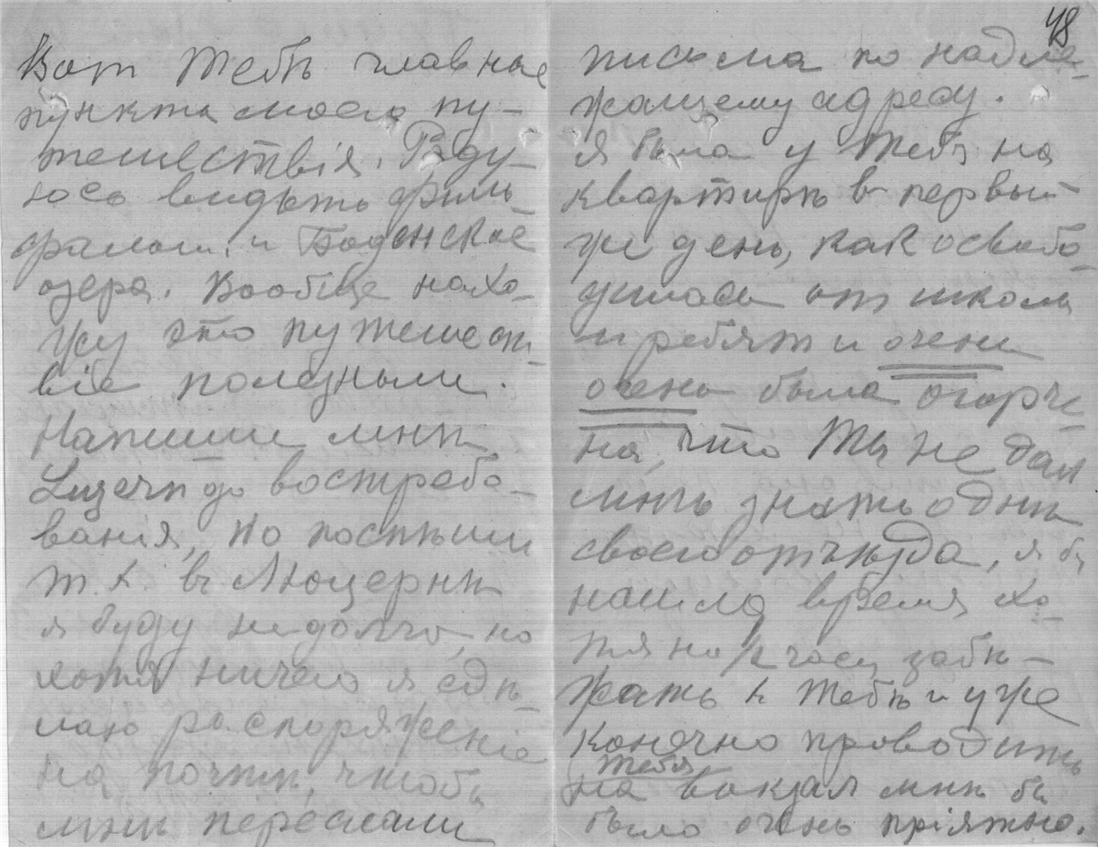 Вотъ Тебѣ главные
пункты моего пу-
тешествія. Раду-
юсь видѣть
и Боденское
озера. Вообще нахо-
жу это путешест-
віе полезнымъ.
Напиши мнѣ
до востребо-
ванія, но поспѣши
т. к. въ Люцернѣ
я буду недолго, но
хотя ничего я сдѣ-
лаю распоряженіе
на почтѣ, чтобы
мнѣ переслали
48
письма по надле-
жащему адресу.
Я была у Тебя на
квартирѣ въ первый
же день, какъ освобо-
дилась отъ школы
и ребятъ и очень
очень была огорче-
на, что Ты не далъ
мнѣ знать о днѣ
своего отъѣзда, я бы
нашла время хо-
тя на ½ часа забѣ-
жать къ Тебѣ и уже
конечно проводить
Тебя
на вокзалъ мнѣ бы
было очень пріятно.